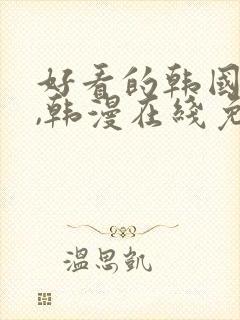 好看的韩国
,韩漫在线免
温思凯